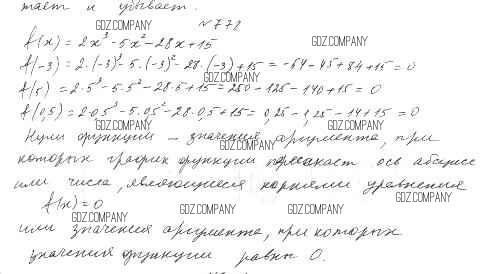 тает и убывает.
GDZ.COMPANY
№778
f(x) = 2x³-5x²-28x+15
GDZ.COMPANY
f(-3) = 2·(-3)³-5·(-3)²-28·(-3)+15 = -54-45+84+15=0
GDZ.COMPANY
f(5) = 2·5³-5·5²-28·5+15=250-125-140+15=0
f(0,5) = 2·0,5³-5·0,5²-28·0,5+15=0,25-1,25-14+15=0
GDZ.COMPANY GDZ.COMPANY
Нули функции – значения аргумента, при
GDZ.COMPANY
которых график функции пересекает ось абсцисс
или числа, являющиеся корнями уравнения
GDZ.COMPANY
f(x)=0
GDZ.COMPANY GDZ.COMPANY GDZ.COMPANY
или значения аргумента, при которых
значения функции равны 0.